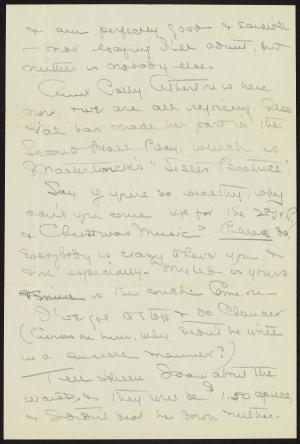 & am perfectly good & sensible
- not loafing I'll admit, but
neither is nobody else.
Aunt Polly Atherton is here
now, & we are all rejoicing. Also
Val has made her part in the
Second Hall Play, which is
Maeterlinck's "Sister Beatrice".
Say, if you're so wealthy, why
can't you come up for the 2nd H. P.
& Christmas Music? Please do,
everybody is crazy to have you, &
me especially - my bed is yours
& mine is the couch. Come on -
I've got to stop & do Chaucer
(Curses on him, why didn't he write
in a sensible manner?)
Tell Helen I saw about the
waists, & they will be $1.50 apiece,
& I couldn't beat her down neither.